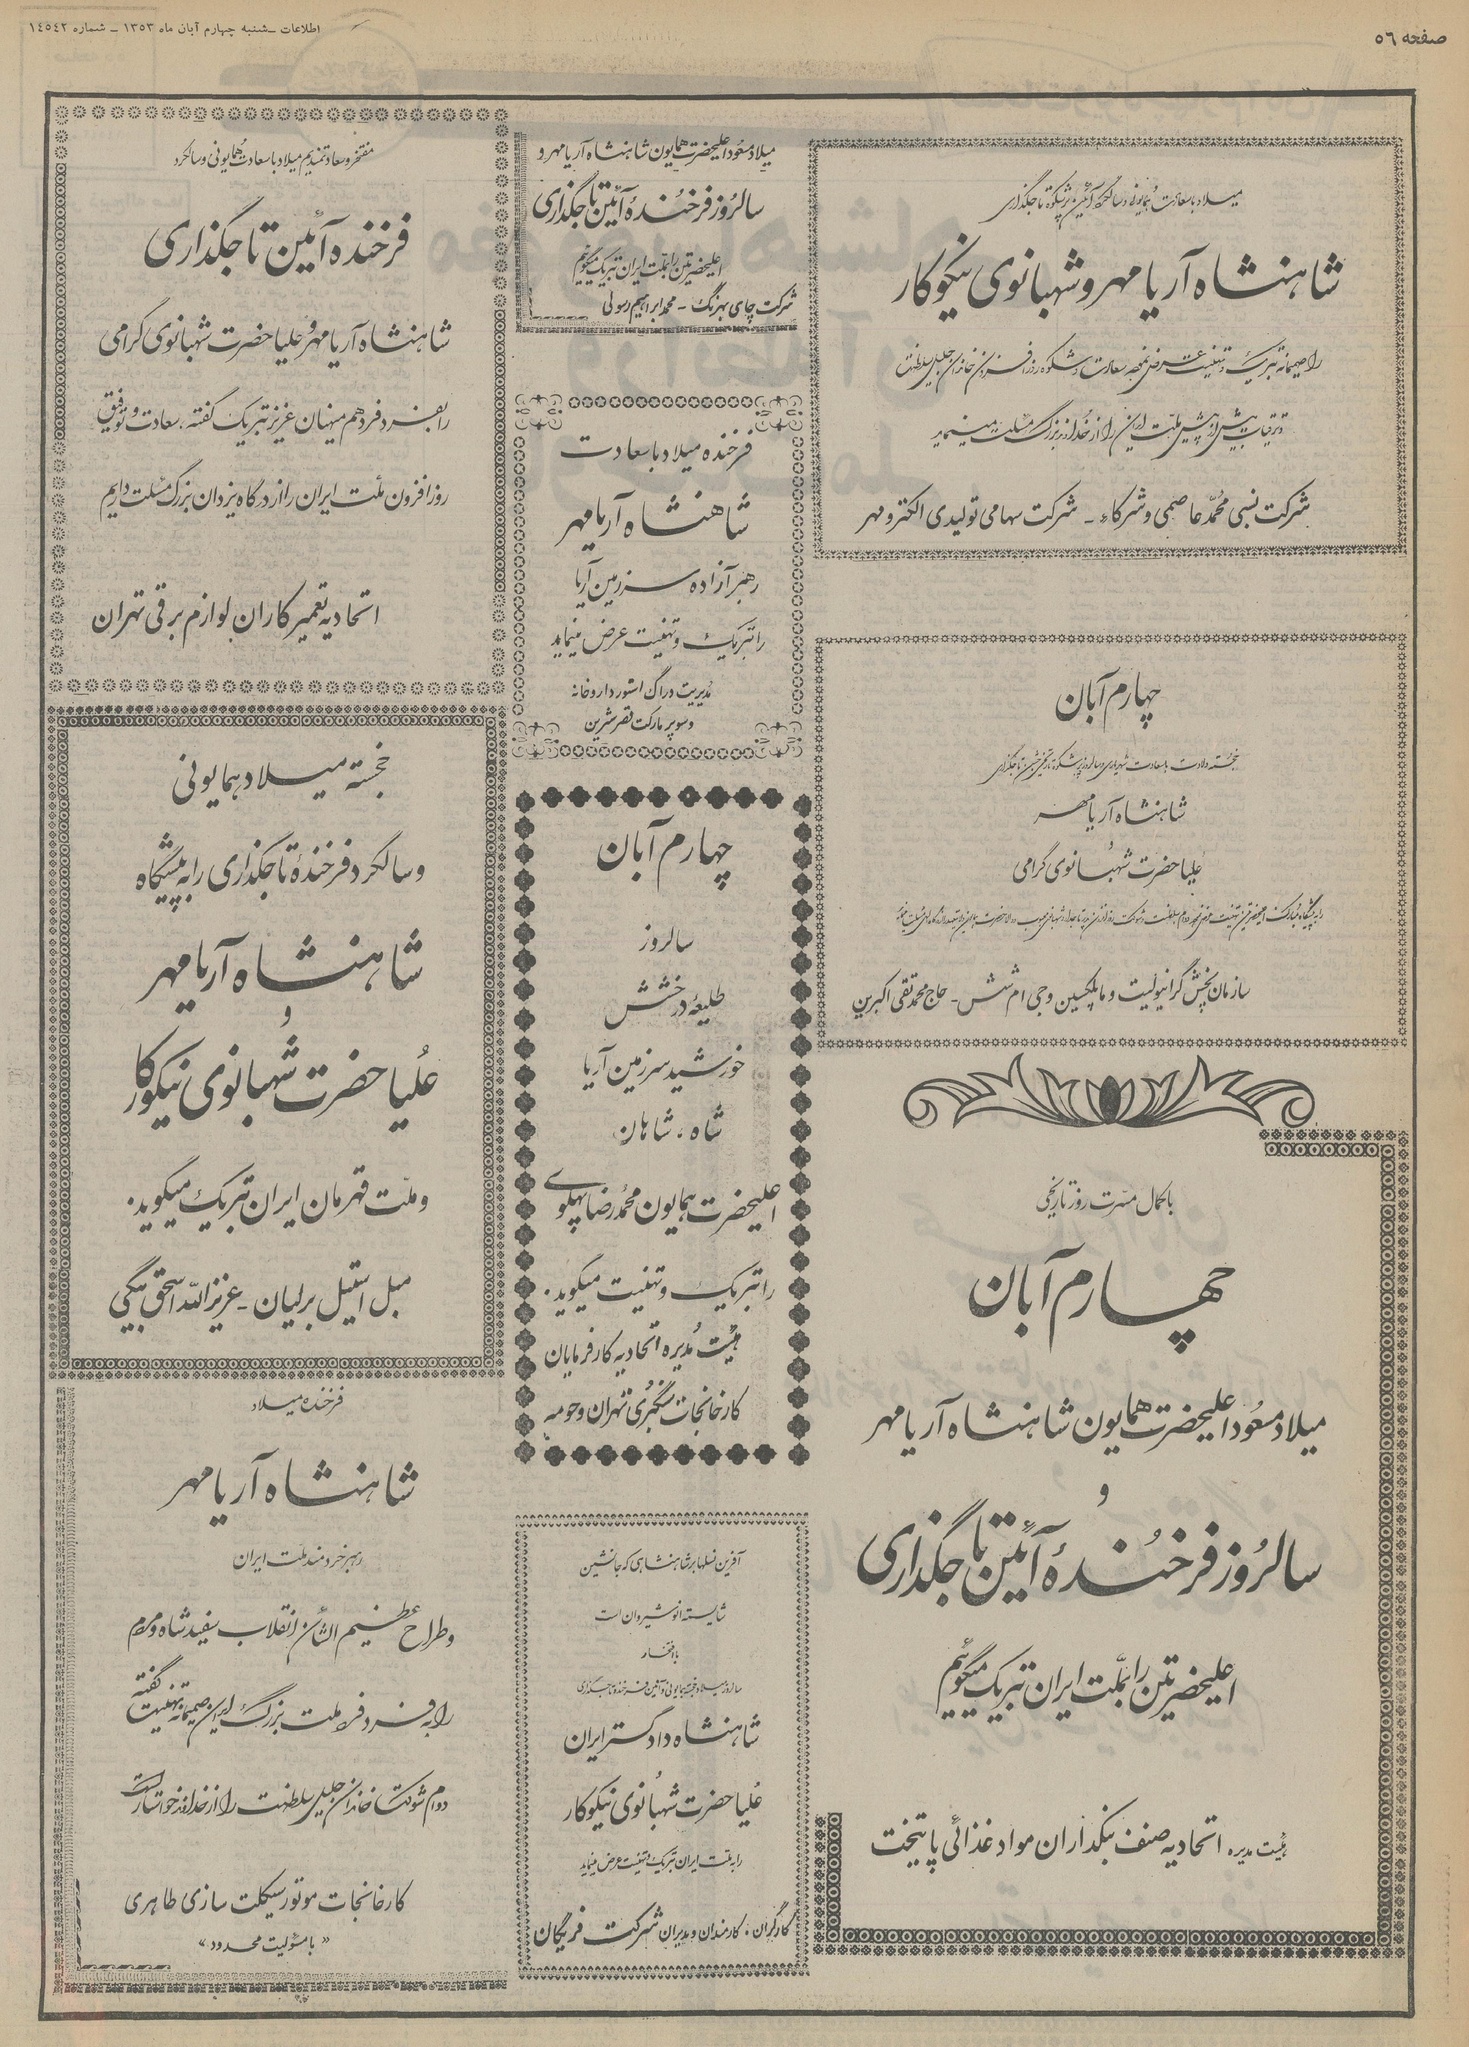 صفحه ٥٦
اطلاعات ـ شنبه چهارم آبان ماه ۱۳۵۳ ـ شماره ۱٤٥٤۲
میلاد باسعادت همایونی و سالگرد آئین پرشکوه تاجگذاری
شاهنشاه آریامهر و شهبانوی نیکوکار
شرکت نسبی محمد عاصمی و شرکاء ـ شرکت سهامی تولیدی الکترومهر
چهارم آبان
شاهنشاه آریامهر
علیاحضرت شهبانوی گرامی
سازمان پخش گرانیولیت و ماپلکسین وجی ام شش ـ حاج محمدتقی اکبرین
باکمال مسرت روز تاریخی
چهارم آبان
میلاد مسعود اعلیحضرت همایون شاهنشاه آریامهر
و
سالروز فرخنده آئین تاجگذاری
اعلیحضرتین را بملت ایران تبریک میگوئیم
هیئت مدیره اتحادیه صنف بنکداران مواد غذائی پایتخت
میلاد مسعود اعلیحضرت همایون شاهنشاه آریامهر و
سالروز فرخنده آئین تاجگذاری
اعلیحضرتین را بملت ایران تبریک میگوئیم
شرکت چای بهرنگ ـ محمد ابراهیم رسولی
فرخنده میلاد باسعادت
شاهنشاه آریامهر
رهبر آزاده سرزمین آریا
را تبریک و تهنیت عرض مینماید
مدیریت دراگ استور داروخانه
و سوپر مارکت قصر شیرین
چهارم آبان
سالروز
طلیعه درخشش
خورشید سرزمین آریا
شاه ، شاهان
اعلیحضرت همایون محمدرضا پهلوی
را تبریک و تهنیت میگوید .
هیئت مدیره اتحادیه کارفرمایان
کارخانجات سنگبری تهران و حومه
آفرین نسلها بر شاهنشاهی که جانشین
شایسته انوشیروان است
با افتخار
شاهنشاه دادگستر ایران
علیاحضرت شهبانوی نیکوکار
را به ملت ایران تبریک و تهنیت عرض مینماید
کارگران ، کارمندان و مدیران شرکت فریگان
مفتخر و سعادتمندیم میلاد باسعادت همایونی و سالگرد
فرخنده آئین تاجگذاری
شاهنشاه آریامهر و علیاحضرت شهبانوی گرامی
را بفرد فرد هم میهنان عزیز تبریک گفته ، سعادت و توفیق
روزافزون ملت ایران را از درگاه یزدان بزرگ مسئلت داریم
اتحادیه تعمیرکاران لوازم برقی تهران
خجسته میلاد همایونی
و سالگرد فرخندهٔ تاجگذاری را به پیشگاه
شاهنشاه آریامهر
و
علیاحضرت شهبانوی نیکوکار
و ملت قهرمان ایران تبریک میگوید .
مبل استیل برلیان ـ عزیزالله اسحق بیگی
فرخنده میلاد
شاهنشاه آریامهر
رهبر خردمند ملت ایران
و طراح عظیم الشان انقلاب سفید شاه و مردم
را به فرد فرد ملت بزرگ ایران صمیمانه تهنیت گفته
دوام شوکت خاندان جلیل سلطنت را از خداوند خواستار است
کارخانجات موتور سیکلت سازی طاهری
« با مسئولیت محدود »